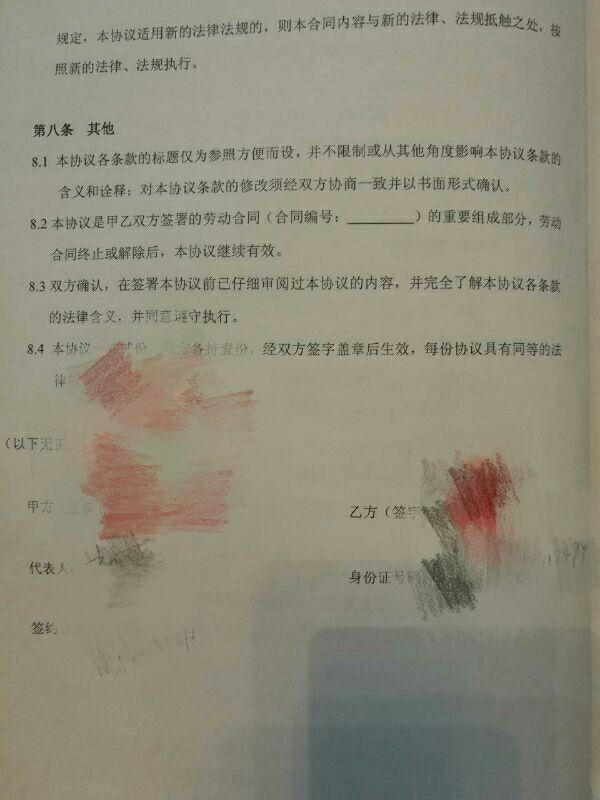 规定，本协议适用新的法律法规的，则本合同内容与新的法律、法规抵触之处，按
照新的法律、法规执行。
第八条 其他
8.1 本协议各条款的标题仅为参照方便而设，并不限制或从其他角度影响本协议条款的
含义和诠释；对本协议条款的修改须经双方协商一致并以书面形式确认。
8.2 本协议是甲乙双方签署的劳动合同（合同编号：________）的重要组成部分，劳动
合同终止或解除后，本协议继续有效。
8.3 双方确认，在签署本协议前已仔细审阅过本协议的内容，并完全了解本协议各条款
的法律含义，并同意遵守执行。
8.4 本协议 各持壹份，经双方签字盖章后生效，每份协议具有同等的法
律
（以下无正
甲方（
乙方（签字
代表人：
身份证号
签约